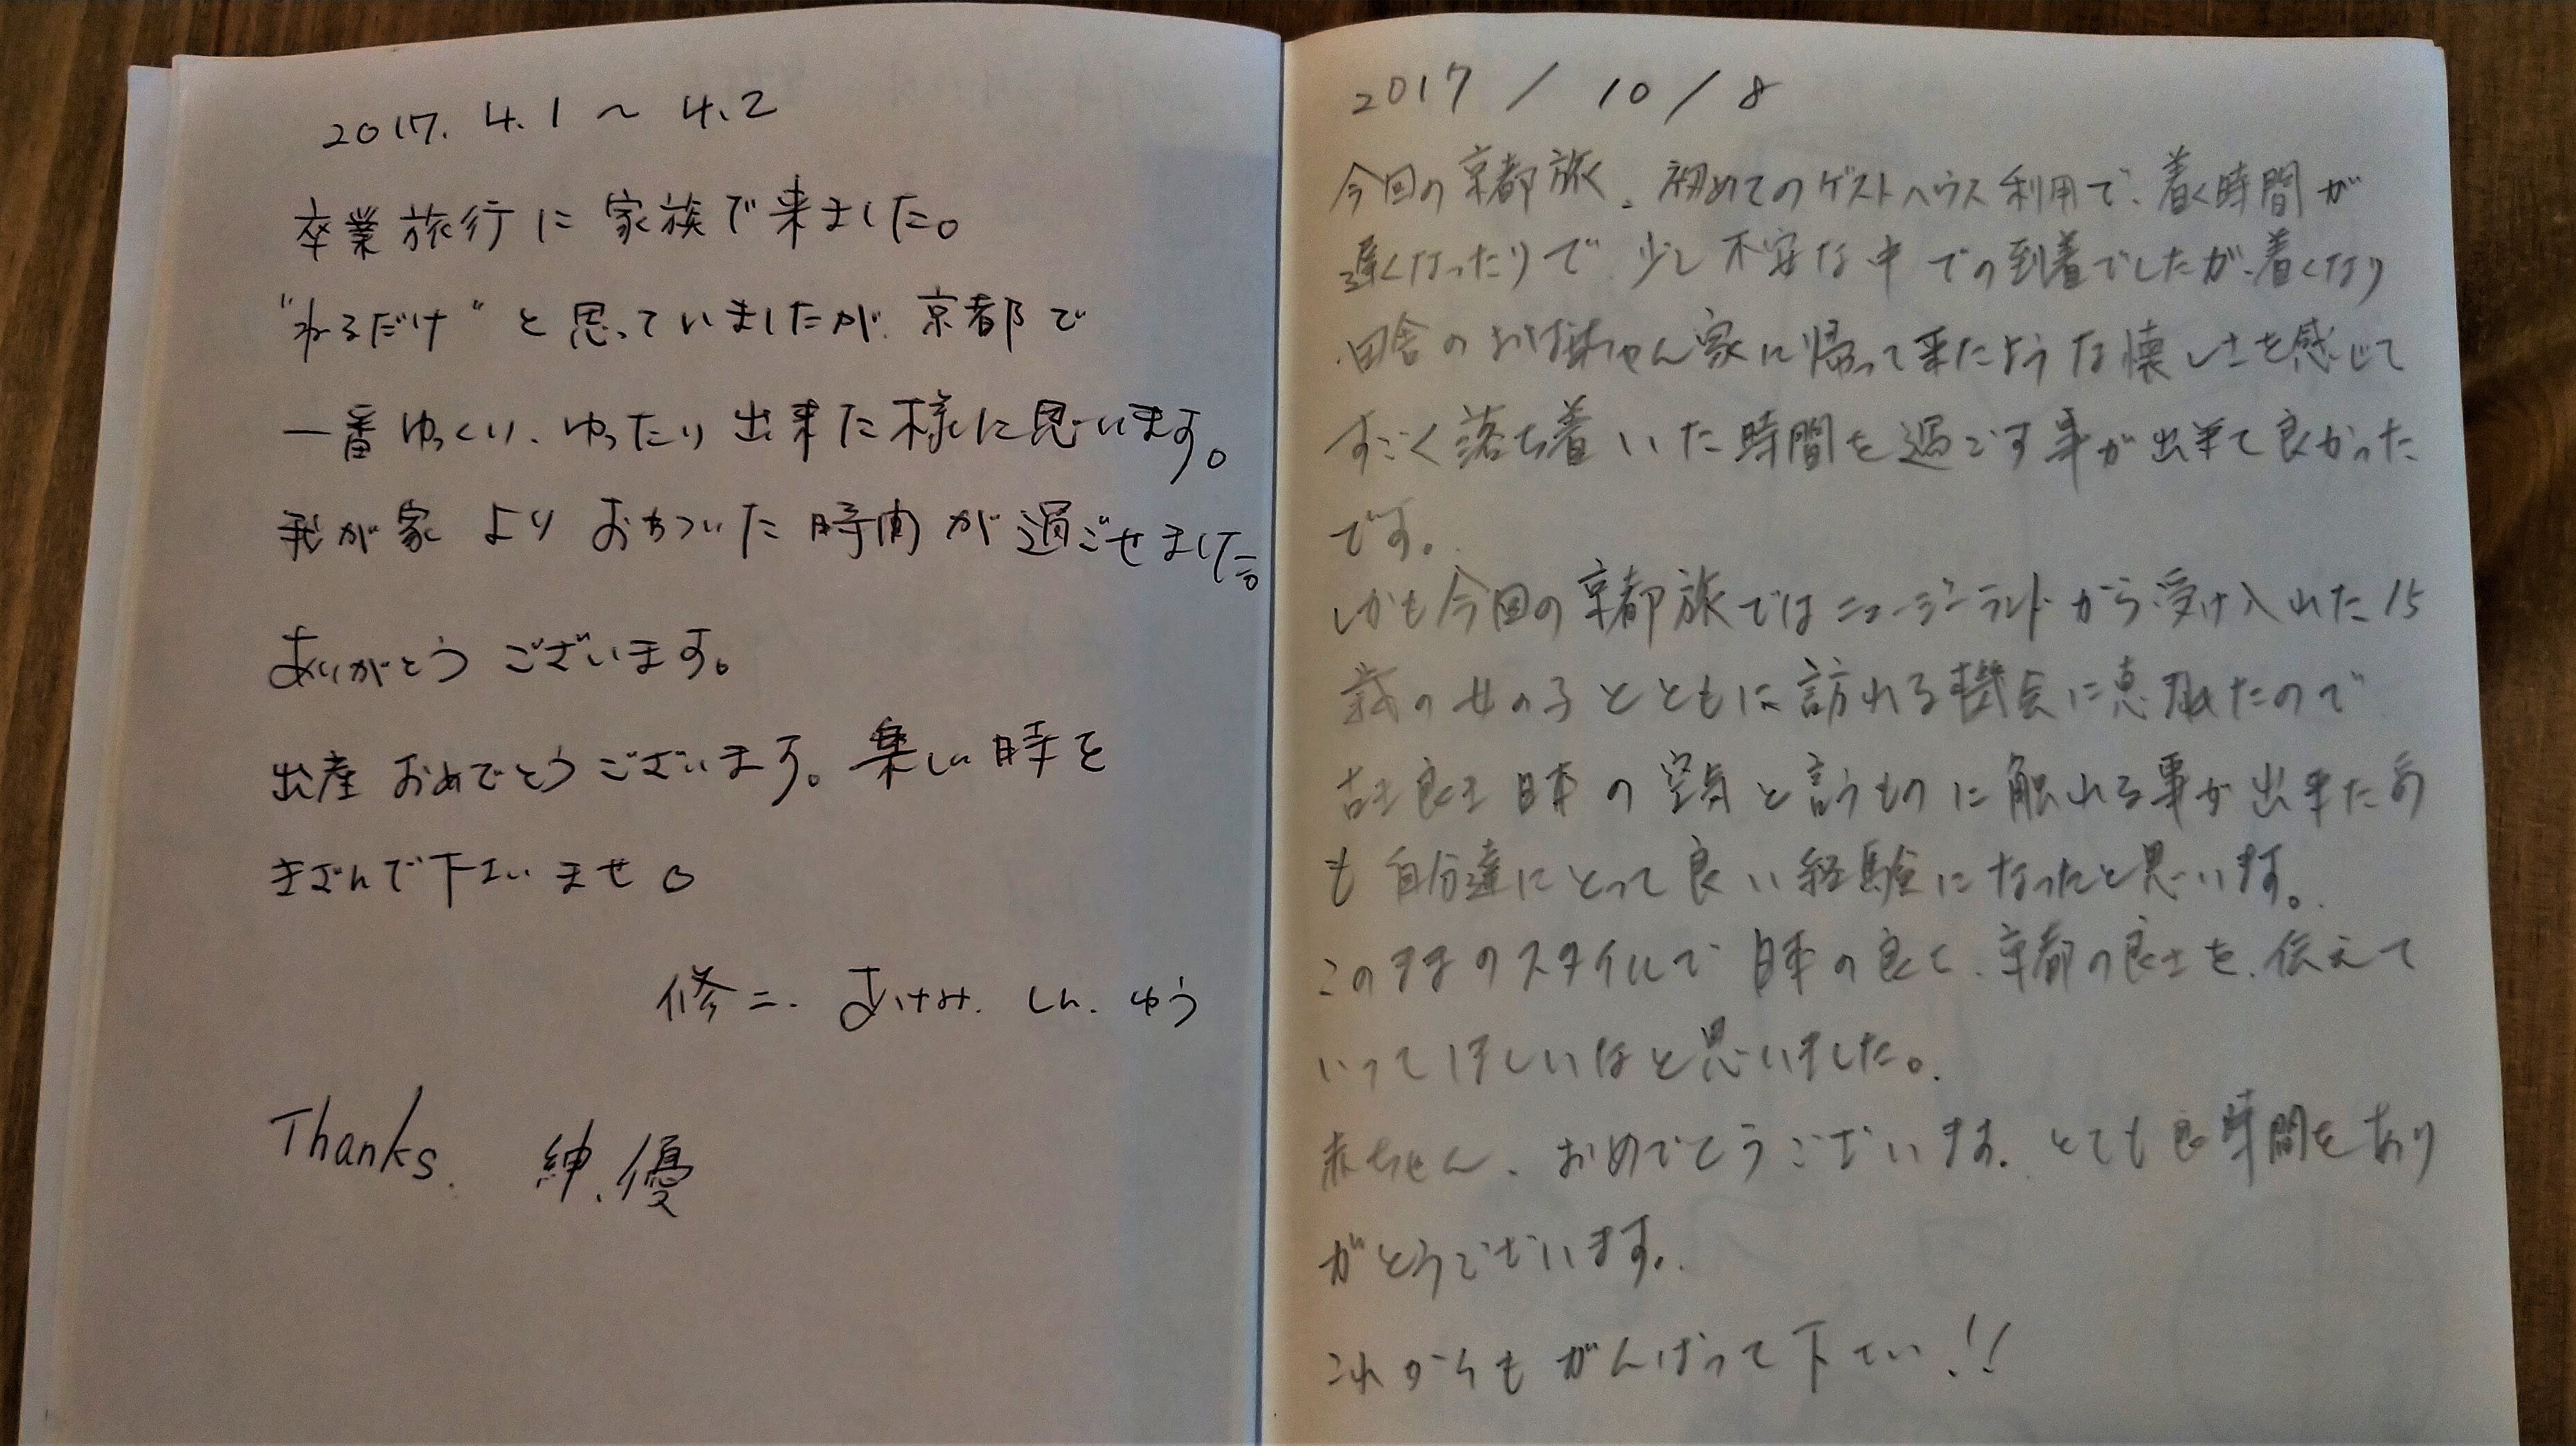 2017. 4.1 〜 4.2
卒業旅行に家族で来ました。
"ねるだけ"と思っていましたが、京都で
一番ゆっくり、ゆったり出来た様に思います。
我が家よりおちついた時間が過ごせました。
ありがとうございます。
出産おめでとうございます。楽しい時を
きざんで下さいませ。
修二、あけみ、しん、ゆう
Thanks. 紳、優
2017 / 10 / 8
今回の京都旅、初めてのゲストハウス利用で、着く時間が
遅くなったりで、少し不安な中での到着でしたが、着くなり
田舎のおばあちゃん家に帰って来たような懐しさを感じて
すごく落ち着いた時間を過ごす事が出来て良かった
です。
しかも今回の京都旅ではニュージーランドから受け入れた15
歳の女の子とともに訪れる機会に恵まれたので
古き良き日本の空気と言うものに触れる事が出来たの
も自分達にとって良い経験になったと思います。
このままのスタイルで日本の良さ、京都の良さを、伝えて
いってほしいなと思いました。
赤ちゃん、おめでとうございます。とても良い時間をあり
がとうございます。
これからもがんばって下さい!!